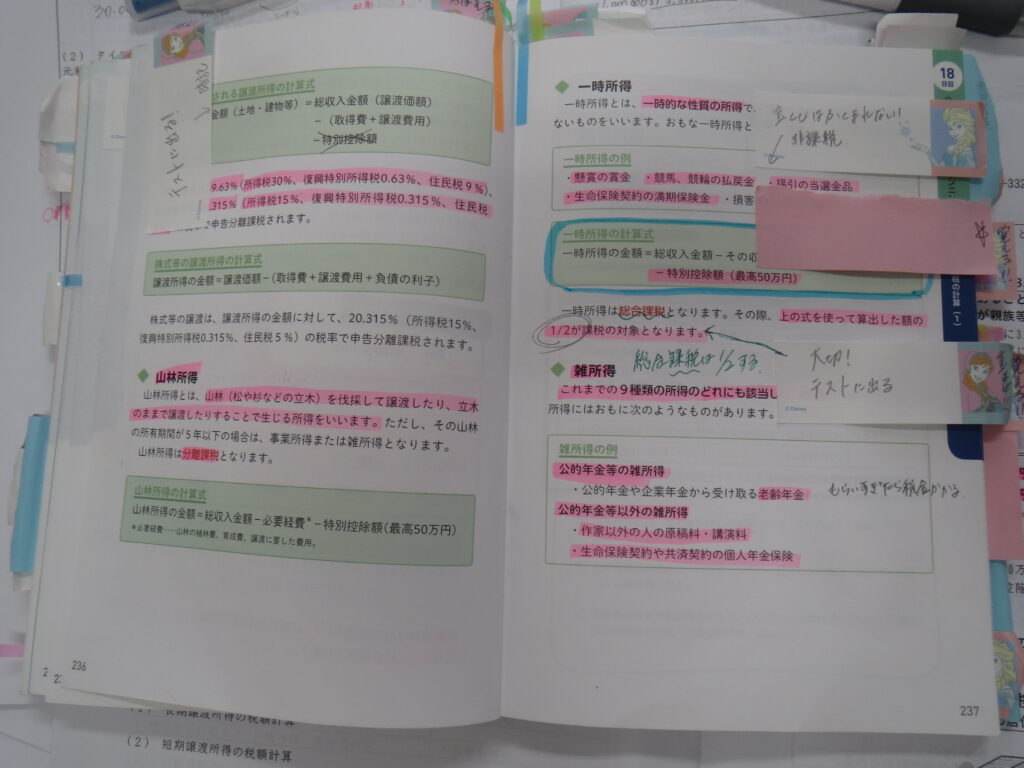 される譲渡所得の計算式
金額（土地・建物等）＝総収入金額（譲渡価額）
－（取得費＋譲渡費用）
－特別控除額
テストに出る!
9.63％（所得税30％、復興特別所得税0.63％、住民税９％）、
.315％（所得税15％、復興特別所得税0.315％、住民税
で申告分離課税されます。
株式等の譲渡所得の計算式
譲渡所得の金額＝譲渡価額－（取得費＋譲渡費用＋負債の利子）
株式等の譲渡は、譲渡所得の金額に対して、20.315％（所得税15％、
復興特別所得税0.315％、住民税５％）の税率で申告分離課税されます。
◆ 山林所得
山林所得とは、山林（松や杉などの立木）を伐採して譲渡したり、立木
のままで譲渡したりすることで生じる所得をいいます。ただし、その山林
の所有期間が５年以下の場合は、事業所得または雑所得となります。
山林所得は分離課税となります。
山林所得の計算式
山林所得の金額＝総収入金額－必要経費*－特別控除額（最高50万円）
*必要経費……山林の植林費、育成費、譲渡に要した費用。
236
◆ 一時所得
一時所得とは、一時的な性質の所得で
ないものをいいます。おもな一時所得と
非課税
一時所得の例
・懸賞の賞金　・競馬、競輪の払戻金　・福引の当選金品
・生命保険契約の満期保険金　・損害
一時所得の計算式
一時所得の金額＝総収入金額－その収
－特別控除額（最高50万円）
一時所得は総合課税となります。その際、上の式を使って算出した額の
1/2が課税の対象となります。
総合課税は1/2する
◆ 雑所得
これまでの９種類の所得のどれにも該当し
所得にはおもに次のようなものがあります。
大切!
テストに出る
© Disney
雑所得の例
公的年金等の雑所得
・公的年金や企業年金から受け取る老齢年金
もらいすぎたら税金かかる
公的年金等以外の雑所得
・作家以外の人の原稿料・講演料
・生命保険契約や共済契約の個人年金保険
237
18
日目
税の計算（1）
が親族等
（1）長期譲渡所得の税額計算
（2）短期譲渡所得の税額計算